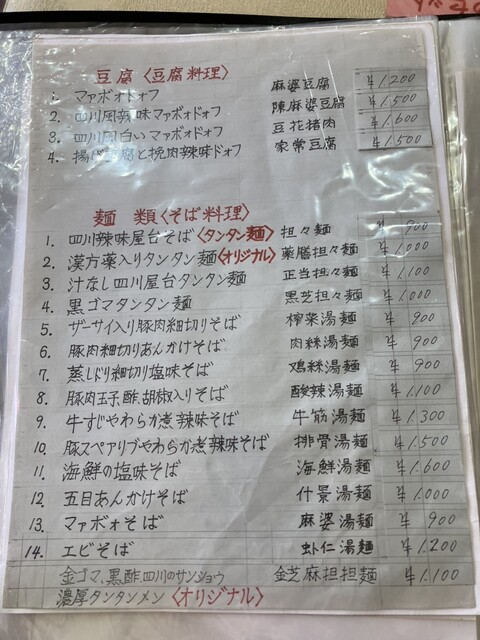 豆腐〈豆腐料理〉
1. マァボォドォフ 麻婆豆腐 ¥1,200
2. 四川風辣味マァボォドォフ 陳麻婆豆腐 ¥1,500
3. 四川風白いマァボォドォフ 豆花猪肉 ¥1,600
4. 揚げ豆腐と挽肉辣味ドォフ 家常豆腐 ¥1,500
麺 類〈そば料理〉
1. 四川辣味屋台そば〈タンタン麺〉 担々麺 ¥ 900
2. 漢方薬入りタンタン麺〈オリジナル〉 薬膳担々麺 ¥1,100
3. 汁なし四川屋台タンタン麺 正当担々麺 ¥1,100
4. 黒ゴマタンタン麺 黒芝担々麺 ¥1,000
5. ザーサイ入り豚肉細切りそば 榨菜湯麺 ¥ 900
6. 豚肉細切りあんかけそば 肉絲湯麺 ¥ 900
7. 蒸しどり細切り塩味そば 鶏絲湯麺 ¥ 900
8. 豚肉玉子酢胡椒入りそば 酸辣湯麺 ¥1,100
9. 牛すじやわらか煮辣味そば 牛筋湯麺 ¥1,300
10. 豚スペアリブやわらか煮辣味そば 排骨湯麺 ¥1,500
11. 海鮮の塩味そば 海鮮湯麺 ¥1,600
12. 五目あんかけそば 什景湯麺 ¥1,000
13. マァボォそば 麻婆湯麺 ¥ 900
14. エビそば 虾仁湯麺 ¥1,200
金ゴマ、黒酢四川のサンショウ 金芝麻担担麺 ¥1,100
濃厚タンタンメン〈オリジナル〉